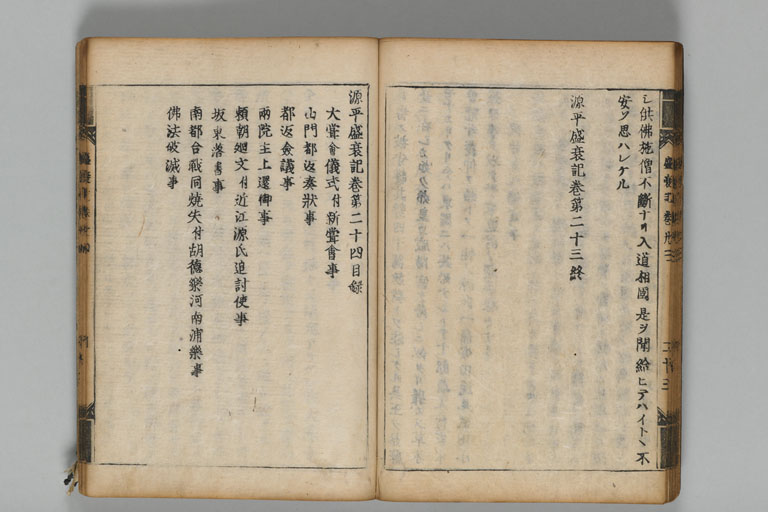 シ供佛施僧不斷ナリ入道相國是ヲ聞給ヒテハイトヽ不
安ソ思ハレケル
源平盛衰記卷第二十三終
源平盛衰記卷第二十四目録
大嘗會儀式付新嘗會事
山門都返奏状事
都返僉議事
兩院主上還御事
頼朝廻文付近江源氏追討使事
坂東落書事
南都合戰同燒失付胡德樂河南浦樂事
佛法破滅事